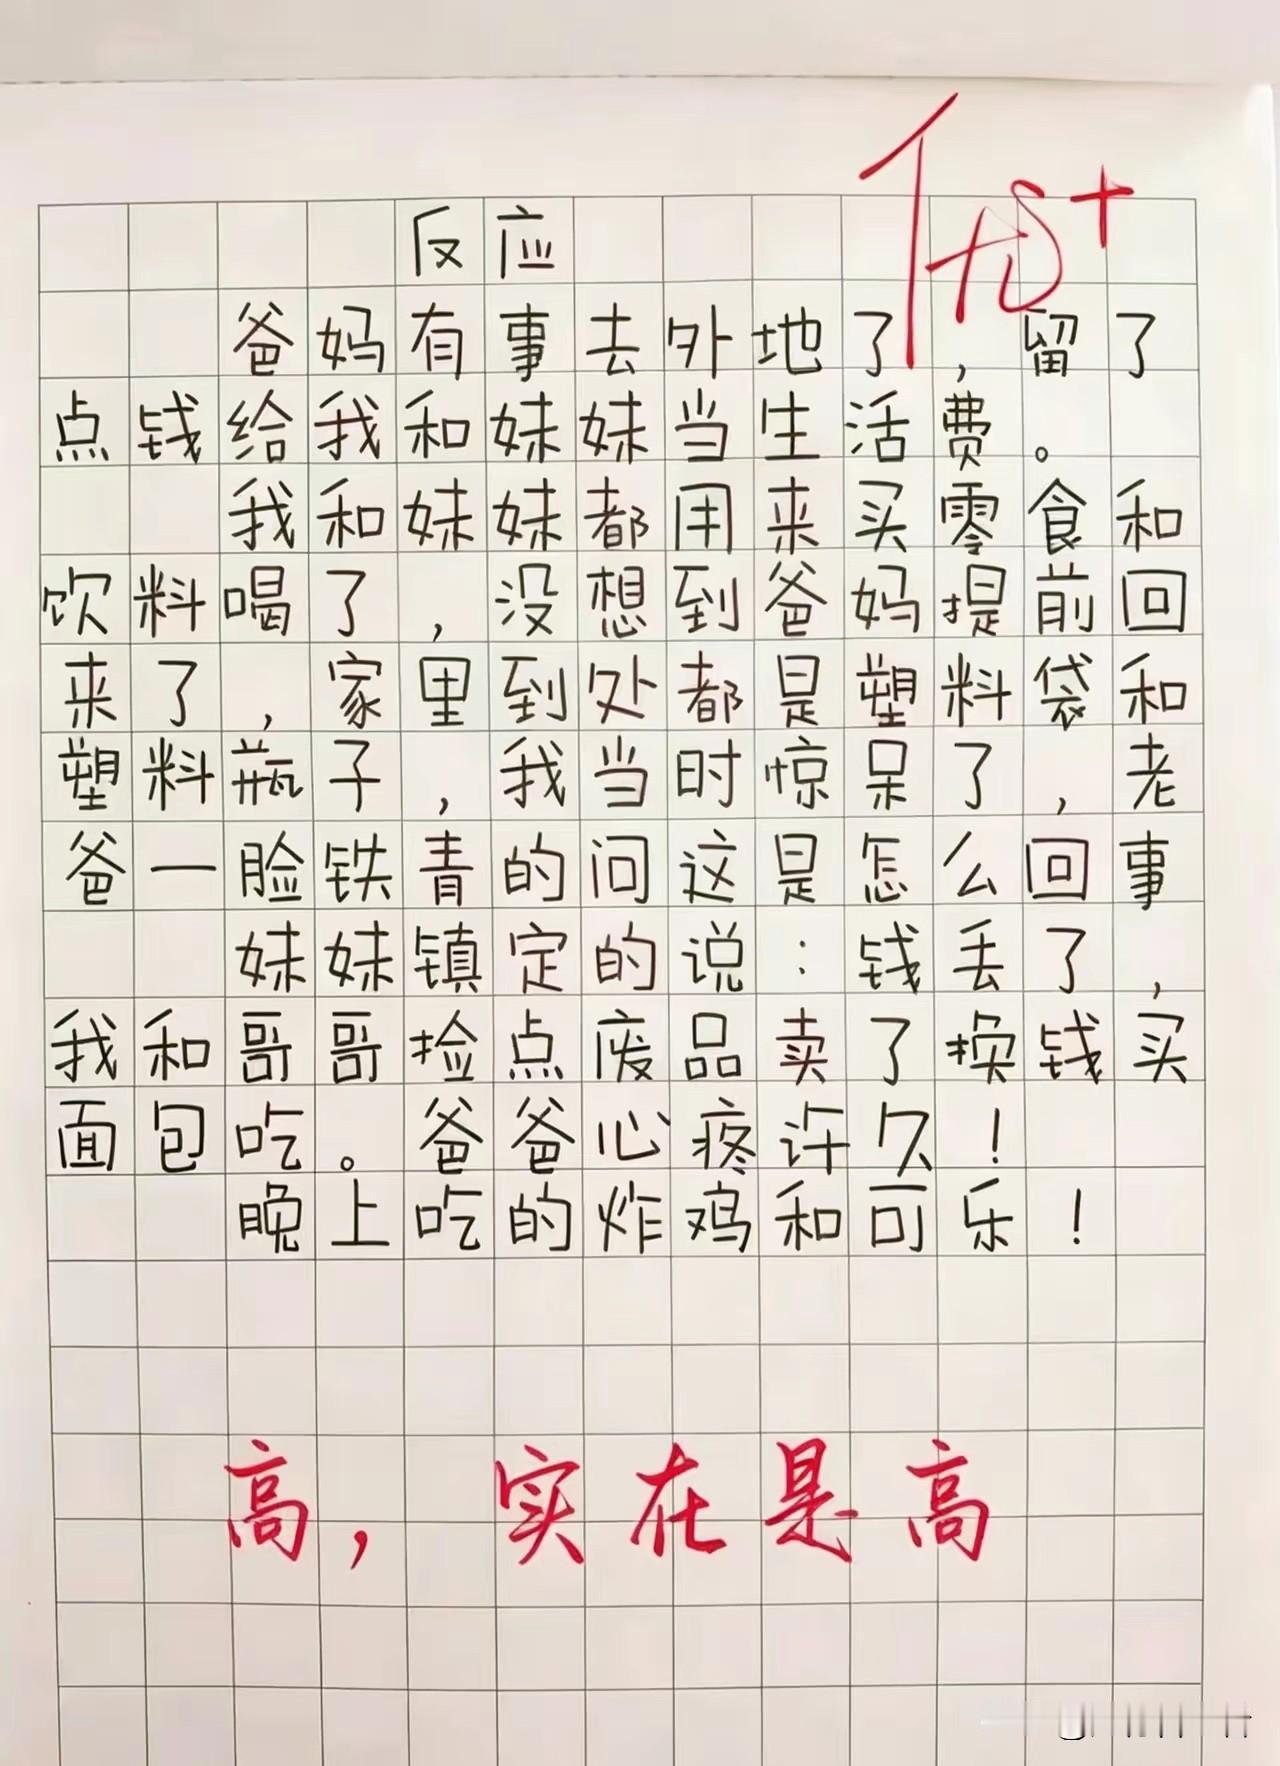 优+
反应
爸妈有事去外地了，留了
点钱给我和妹妹当生活费。
我和妹妹都用来买零食和
饮料喝了，没想到爸妈提前回
来了，家里到处都是塑料袋和
塑料瓶子，我当时惊呆了，老
爸一脸铁青的问这是怎么回事
妹妹镇定的说：钱丢了，
我和哥哥捡点废品卖了换钱买
面包吃。爸爸心疼许久！
晚上吃的炸鸡和可乐！
高，实在是高